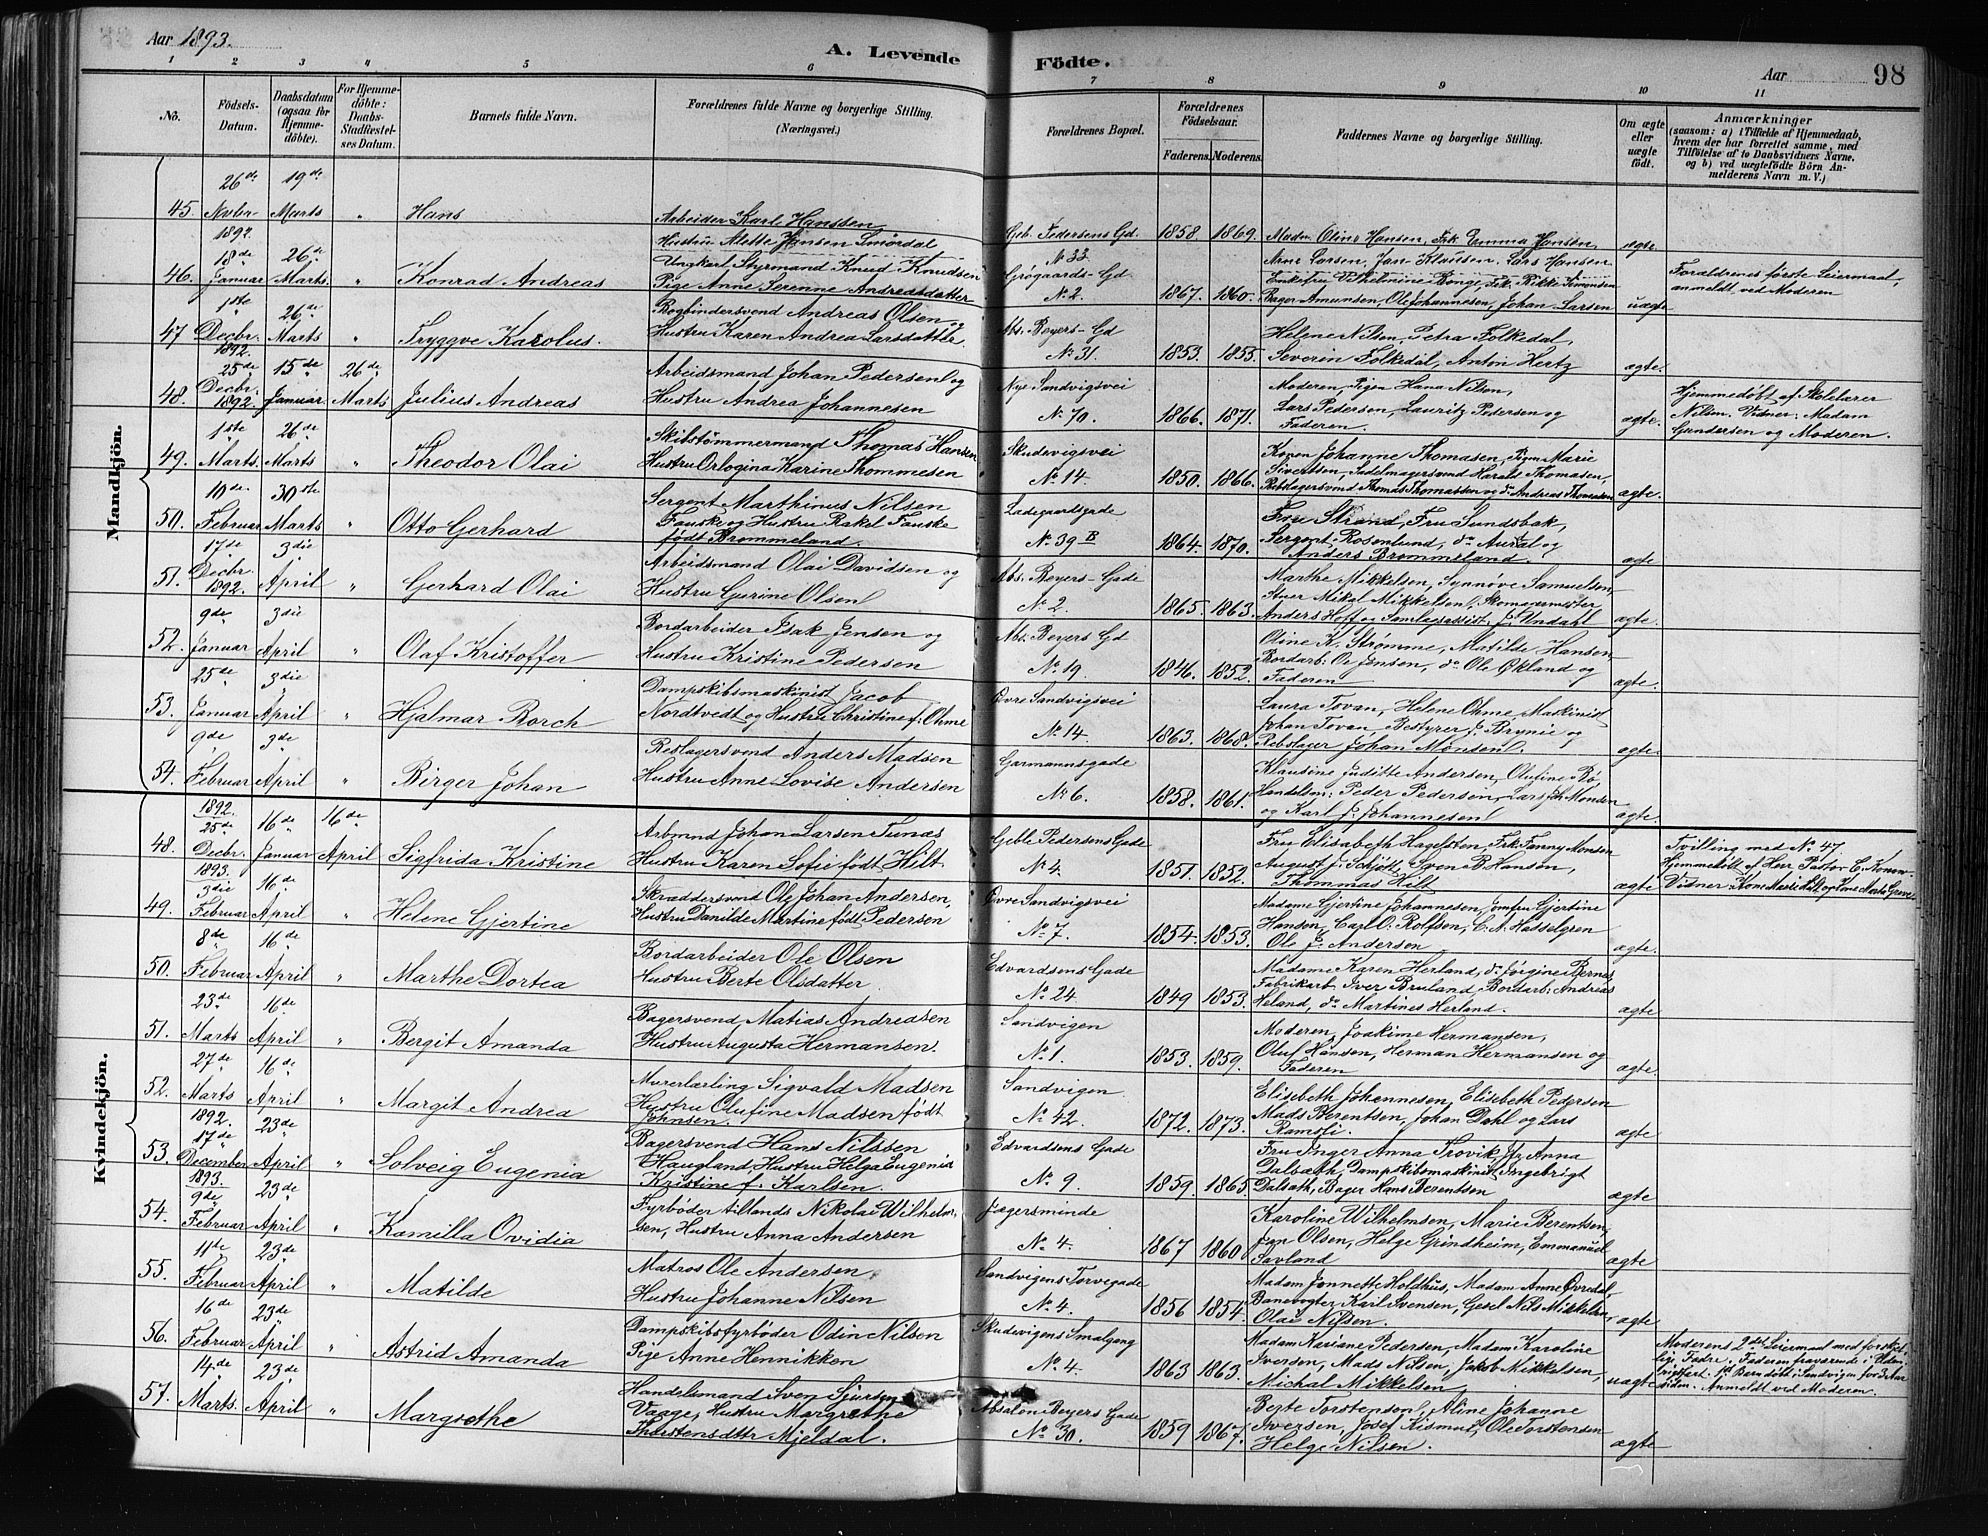 Aar 1893.
A. Levende Födte.
Aar
98
1 2 3 4 5 6 7 8 9 10 11
No.
Födsels-Datum.
Daabsdatum (ogsaa for Hjemmedöbte).
For Hjemmedöbte: Daabs-Stadfestelses Datum.
Barnets fulde Navn.
Forældrenes fulde Navne og borgerlige Stilling. (Næringsvei.)
Forældrenes Bopæl.
Forældrenes Födselsaar.
Faderens. Moderens.
Faddernes Navne og borgerlige Stilling.
Om ægte eller uægte födt.
Anmærkninger (saasom: a) i Tilfælde af Hjemmedaab, hvem der har forrettet samme, med Tilföielse af to Daabsvidners Navne, og b) ved uægtefödte Börn Anmelderens Navn m. V.)
Mandkjön.
45. 26de Novbr 1892. 19de Marts " Hans
Arbeider Karl Hanssen
Hustru Alette Jensen Smördal
Geb. Pedersens Gd No 33 1858 1869.
Madm Oline Hansen, Frk Emma Hansen,
Arne Larsen, Jan Klausen, Lars Hansen
ægte
46. 18de Januar 26de Marts " Konrad Andreas
Ungkarl Styrmand Knud Knudsen
Pige Anne Serenne Andreasdatter
Grøgaards-Gd No 2. 1867. 1860.
Enkefru Vilhelmine Bonge, Frk. Rikke Simonsen
Bager Amundsen, Ole Johannesen, Johan Larsen
uægte
Forældrenes første Leiermaal,
anmeldt ved Moderen
47. 1ste Decbr. 1892. 26de Marts " Tryggve Karolus.
Bogbindersvend Andreas Olsen og
Hustru Karen Andrea Larsdatter
Abs. Beyers-Gd No 31. 1853. 1855.
Helene Nilsen, Petra Folkedal,
Severin Folkedal, Anton Hertz
ægte.
48. 25de Decbr. 1892. 15de Januar 26de Marts Julius Andreas
Arbeidsmand Johan Pedersen og
Hustru Andrea Johannesen
Nye Sandvigsvei No 70. 1866. 1871.
Moderen, Pigen Hana Nilsen,
Lars Pedersen, Lauritz Pedersen og
Faderen.
ægte.
Hjemmedöbt af Skolelærer
Nilsen. Vidner: Madam
Gundersen og Moderen.
49. 1ste Marts. 26de Marts " Theodor Olai
Skibstömmermand Thomas Hansen
Hustru Orlogina Karine Thommesen
Skudevigsvei No 14. 1850. 1866.
Konen Johanne Thomasen, Pigen Marie
Sivertsen, Sadelmagersvend Harald Thomasen,
Rebslagersvend Thomas Thomassen og do Andreas Thomasen
ægte.
50. 10de Februar 30te Marts " Otto Gerhard
Sergent Marthinus Nilsen
Fauske og Hustru Rakel Fauske
født Brommeland.
Ladegaardsgade No 39 B 1864. 1870.
Fru Strand, Fru Sundsbak,
Sergent Rosenlund, do Aurdal og
Anders Brommeland.
ægte
51. 17de Decbr. 1892. 3die April " Gerhard Olai
Arbeidsmand Olai Davidsen og
Hustru Gurine Olsen
Abs. Beyers-Gade No 2. 1865. 1863.
Marthe Mikkelsen, Synnöve Samuelsen,
Mikal Mikkelsen, Skomagermester
Anders Hoff og
ægte.
52. 9de Januar 3die April " Olaf Kristoffer
Bordarbeider Isak Jensen og
Hustru Kristine Pedersen
Abs. Beyers Gd No 19. 1846. 1852.
Oline K. Strömme, Matilde Hansen,
Bordarb: Ole Jensen, do Ole Økland og
Faderen
ægte.
53. 25de Januar 3die April " Hjalmar Rorch
Dampskibsmaskinist Jacob
Nordtvedt og Hustru Christine f: Ohme
Øvre Sandvigsvei No 14. 1863. 1868.
Laura Tovan, Helene Ohme, Maskinist
Johan Tovan, Bestyrer J. Brynie og
Rebslager Johan Monsen.
ægte.
54. 9de Februar 3die April " Birger Johan
Reslagersvend Anders Madsen
Hustru Anne Lovise Andersen
Garmannsgade No 6. 1858. 1861.
Klausine Juditte Andersen, Olufine Bö,
Handelsm: Peder Pedersen, Lars Joh Monsen
og Karl J. Johannesen
ægte.
Kvindekjön.
48. 1892. 25de Decbr. 16de Januar 16de April Sigfrida Kristine
Arbmnd Johan Larsen Tunæs
Hustru Karen Sofie født Hilt
Geble Pedersens Gade No 4. 1851. 1852.
Fru Elisabeth Hagelsten, Frk. Fanny Monsen
August f. Schjøt, Sven B. Hansen,
Thommas Hilt
ægte
Tvilling med No 47.
Hjemmedöbt af Herr Pastor C. Konow.
Vidner: Kone Marie Hilt og Kone Marta Grone
49. 1893. 3die Februar 16de April " Helene Gjertine
Skræddersvend Ole Johan Andersen,
Hustru Danilde Martine født Pedersen
Øvre Sandvigsvei No 7. 1854. 1853.
Madame Gjertine Johannesen, Jomfru Gjertine
Hansen, Carl O. Rolfsen, C. A. Hasselgren
Ole J. Andersen
ægte.
50. 8de Februar 16de April " Marthe Dortea
Bordarbeider Ole Olsen
Hustru Berte Olsdatter
Edvardsens Gade No 24. 1849 1853.
Madame Karen Herland, do Jørgine Bernes
Fabrikarb Iver Bruland, Bordarb: Andreas
Heland, do Martines Herland.
ægte
51. 23de Marts 16de April " Bergit Amanda
Bagersvend Matias Andreasen
Hustru Augusta Hermansen.
Sandvigen No 1. 1853. 1859.
Moderen, Joakime Hermansen,
Oluf Hansen, Herman Hermansen og
Faderen
ægte.
52. 27de Marts 16de April " Margit Andrea
Murerlærling Sigvald Madsen
Hustru Olufine Madsen født
Johnsen.
Sandvigen No 42. 1872. 1873.
Elisebeth Johannesen, Elisebeth Pedersen
Mads Berentsen, Johan Dahl og Lars
Ramsli.
ægte
53. 1892. 17de December 23de April " Solveig Eugenia
Bagersvend Hans Nilssen
Haugland Hustru Helga Eugenia
Kristine f. Karlsen.
Edvardsens Gade No 9. 1859. 1865.
Fru Inger Anna Trovik, Fr. Anna
Dalsath, Dampskibsmaskinist Ingebrigt
Dalsath, Bager Hans Berentsen
ægte
54. 1893. 9de Februar 23de April " Kamilla Ovidia
Fyrböder tillands Nikolai Wilhelm-
sen, Hustru Anna Andersen
Jægersminde No 4. 1867 1860
Karoline Wilhelmsen, Marie Berentsen,
Jan Olsen, Helge Grindheim, Emmanuel
Savland
ægte
55. 11te Februar 23de April " Matilde
Matros Ole Andersen
Hustru Johanne Nilsen
Sandvigens Torvegade No 4. 1856 1854.
Madam Jennette Holdhus, Madam Anne Øvredal,
Banevogter Karl Svensen, Gesel Nils Mikkelsen
Olai Nilsen.
ægte
56. 16de Februar 23de April " Astrid Amanda
Dampskibsfyrböder Odin Nilsen
Pige Anne Hennikken
Skudevigens Smalgang No 4. 1863 1863.
Madam Mariane Pedersen, Madam Karoline
Iversen, Mads Nilsen, Jakob Mikkelsen,
Michal Mikkelsen
uægte
Moderens 2det Leiermaal med forskjel-
lige Fædre. Faderen fraværende i Uden-
rigsfart. 1ste Barn döbt i Sandvigen for 3 Aar
siden. Anmeldt ved Moderen.
57. 14de Marts. 23de April " Margrethe
Handelsmand Sven Sjursen
Vaage, Hustru Margrethe
Thorstensdttr Mjeldal.
Absalon Beyers Gade No 30. 1859 1867.
Berte Torstensen, Aline Johanne
Iversen, Josef Kismul, Ole Torstensen
Helge Nilsen.
ægte